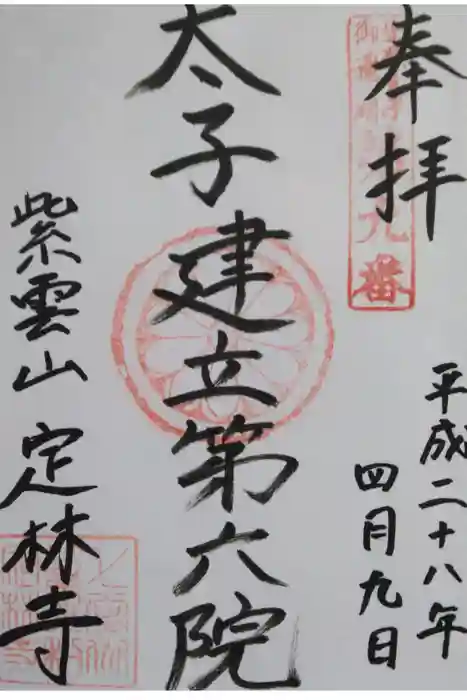 奉拝
平成二十八年
四月九日
太子建立第六院
紫雲山 定林寺